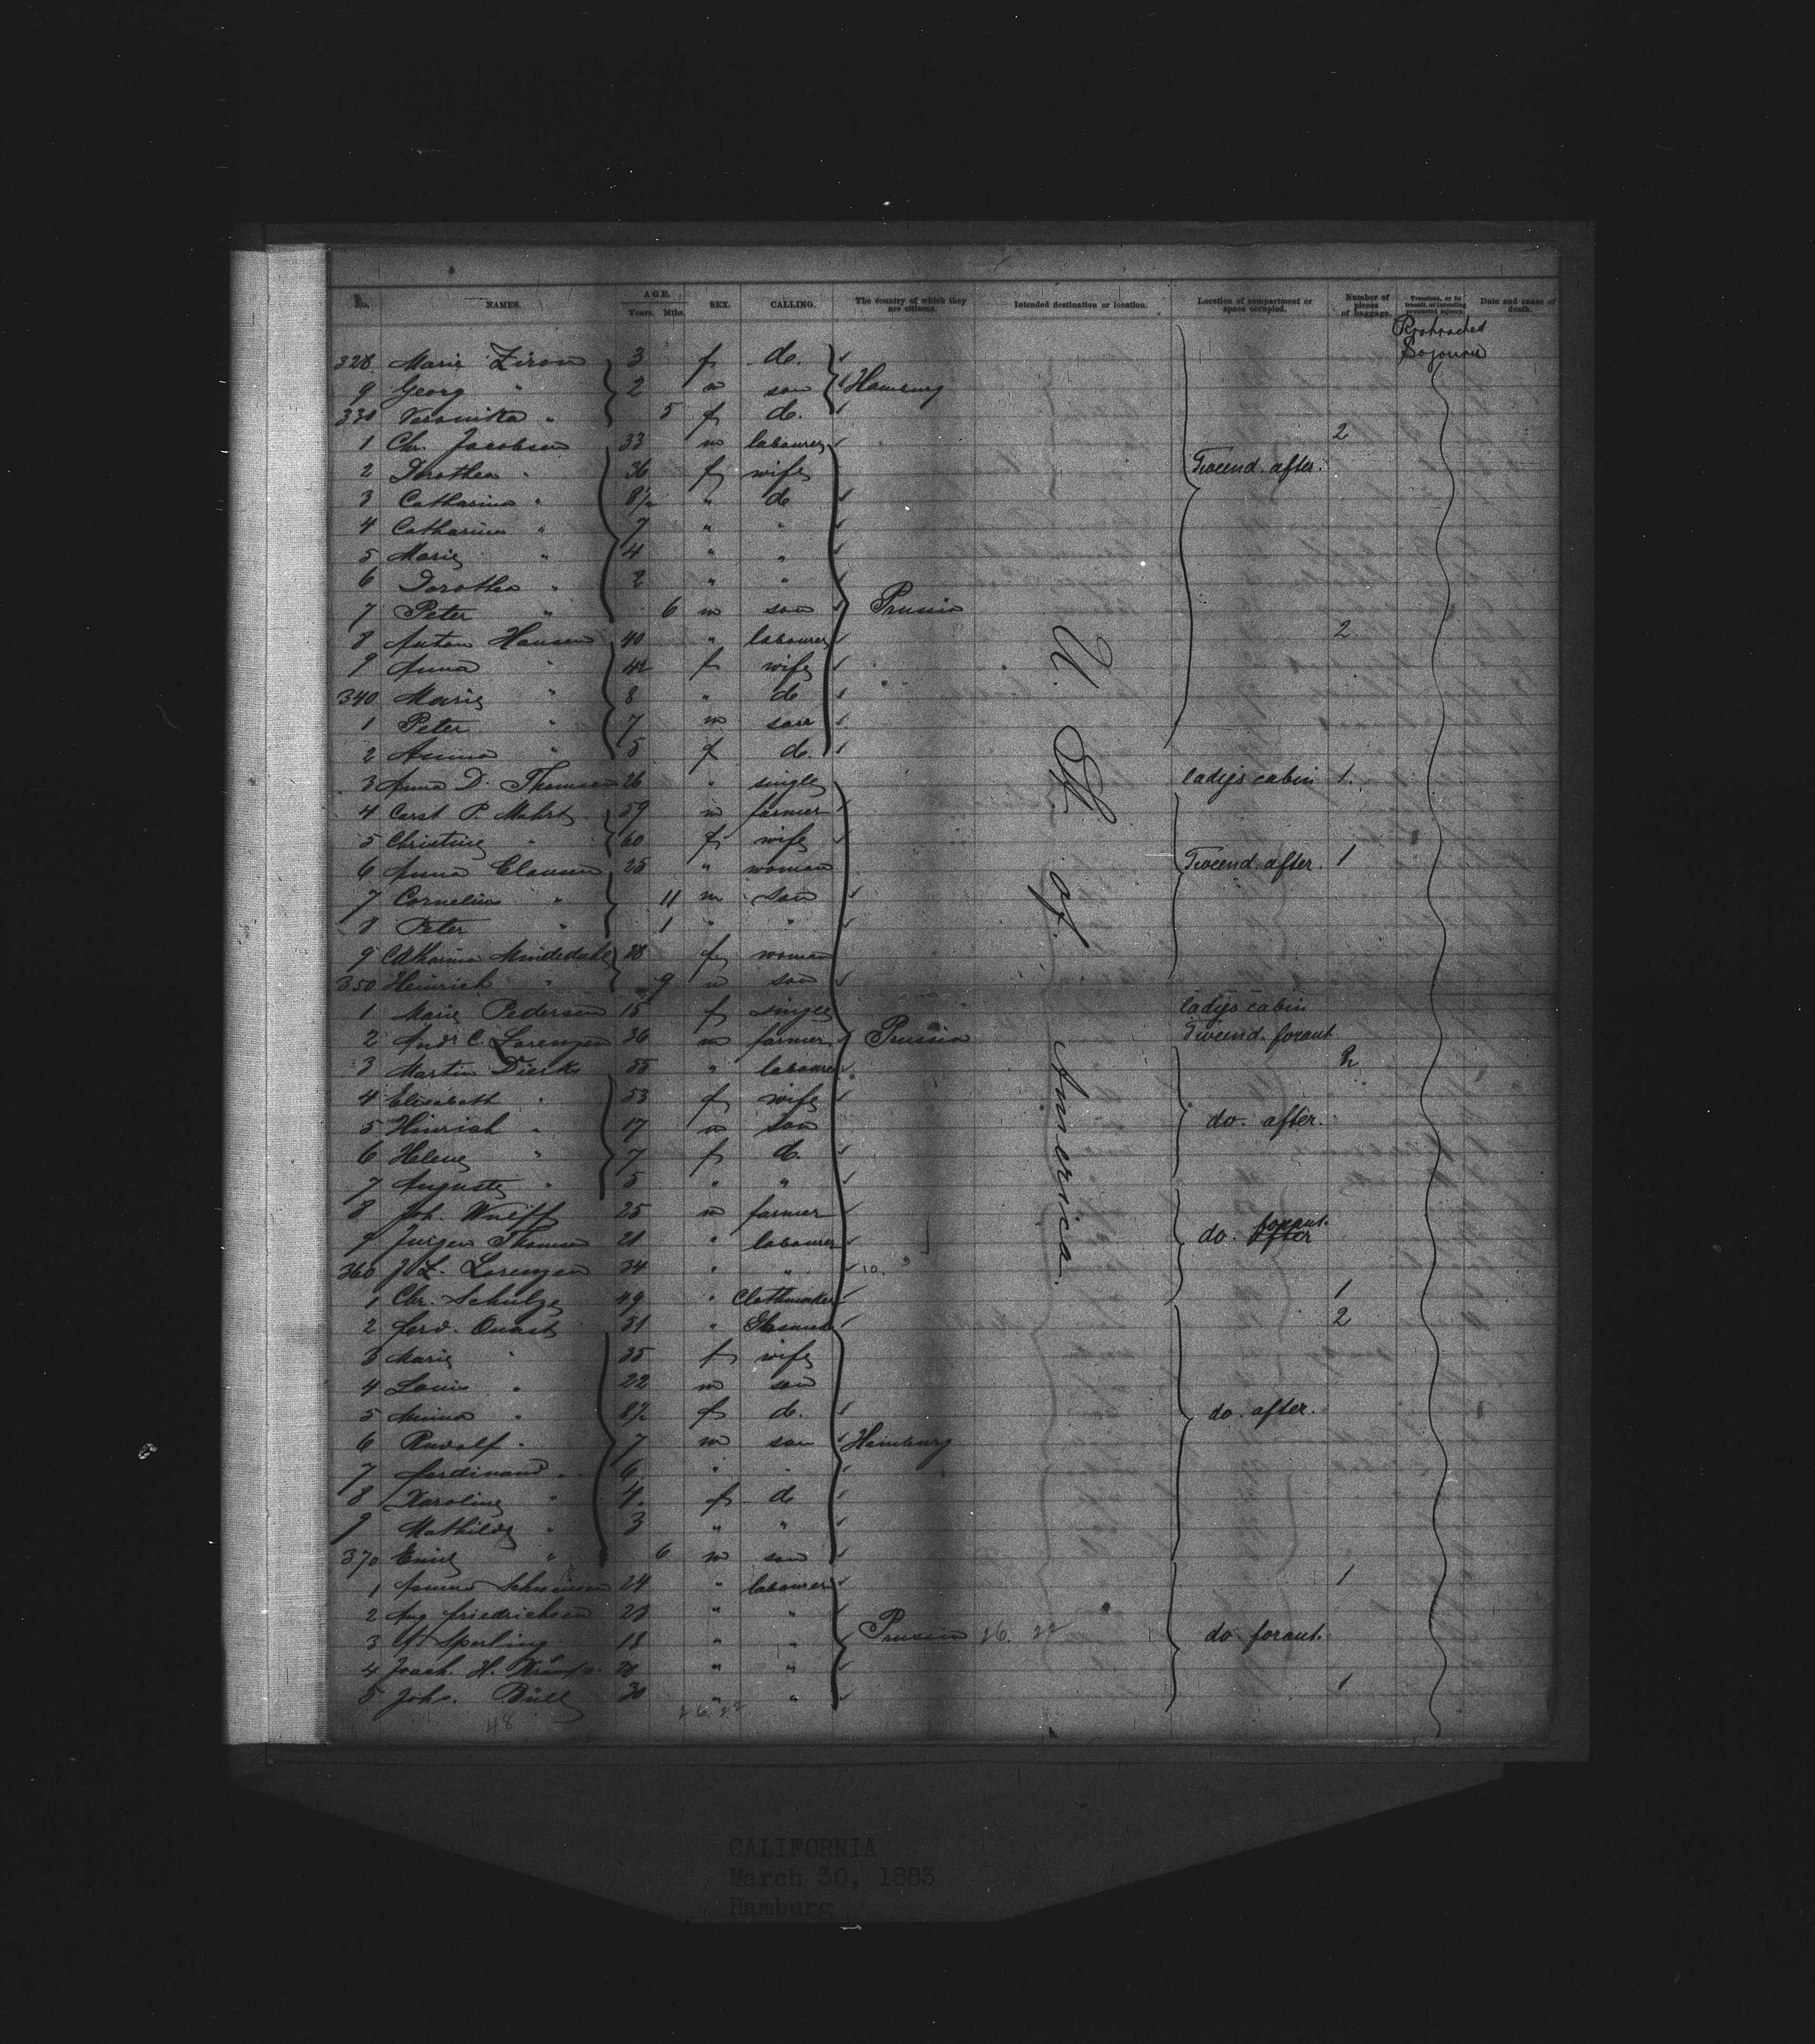 No. NAMES. AGE. Years. Mths. SEX. CALLING. The country of which they are citizens. Intended destination or location. Location of compartment or space occupied. Number of pieces of baggage. Transient, or in transit, or intending protracted sojourn. Date and cause of death.
Protracted Sojourn
328 Marie Ziron 3 f do.
9 Georg " 2 m son Hamburg
330 Veronika " 5 f do.
1 Chr. Jacobsen 33 m labourer 2
2 Dorothea " 36 f wife Tweend. after.
3 Catharina " 8½ " do
4 Catharina " 7 " "
5 Marie " 4 " "
6 Dorothea " 2 " "
7 Peter " 6 m son Prussia
8 Anton Hansen 40 " labourer 2.
9 Anna " 42 f wife
340 Marie " 8 " do
1 Peter " 7 m son
2 Anna " 5 f do.
3 Anna D. Thomsen 26 " single ladys cabin 1.
4 Carst P. 59 m farmer
5 Christine " 60 f wife
6 Anna Clausen 25 " woman Tweend. after. 1
7 Cornelius " 11 m son
8 Peter " 1 " "
9 Catharina 28 f woman
350 Heinrich " 9 m son
1 Marie Pedersen 15 f single ladys cabin
2 Andr. C. Lorenzen 36 m farmer Prussia Tweend. foraut
3 Martin Dierks 55 " labourer 2
4 Elisabeth " 53 f wife
5 Hinrich " 17 m son do. after.
6 Helene " 7 f do.
7 Auguste " 5 " "
8 Joh. Wulff 25 m farmer
9 Jurgen Thomsen 21 " labourer do. after foraut.
360 Lorenzen 34 " " 10.
1 Chr. Schulze 49 " Clothmaker 1
2 Ferd. Quast 51 " 2
3 Marie " 35 f wife
4 Louis " 22 m son
5 Anna " 8½ f do. do. after.
6 Rudolf " 7 m son Hamburg
7 Ferdinand " 6 " "
8 Karoline " 4 f do
9 Mathilde " 3 " "
370 Emil " 6 m son
1 24 " labourer 1
2 Aug Friedrichsen 23 " "
3 Sperling 18 " " Prussia 26. 22 do foraut.
4 Joach. H. " "
5 Johs. Büll 30 " " 1
48 26 22
U. St. of America.
CALIFORNIA
March 30, 1883
Hamburg